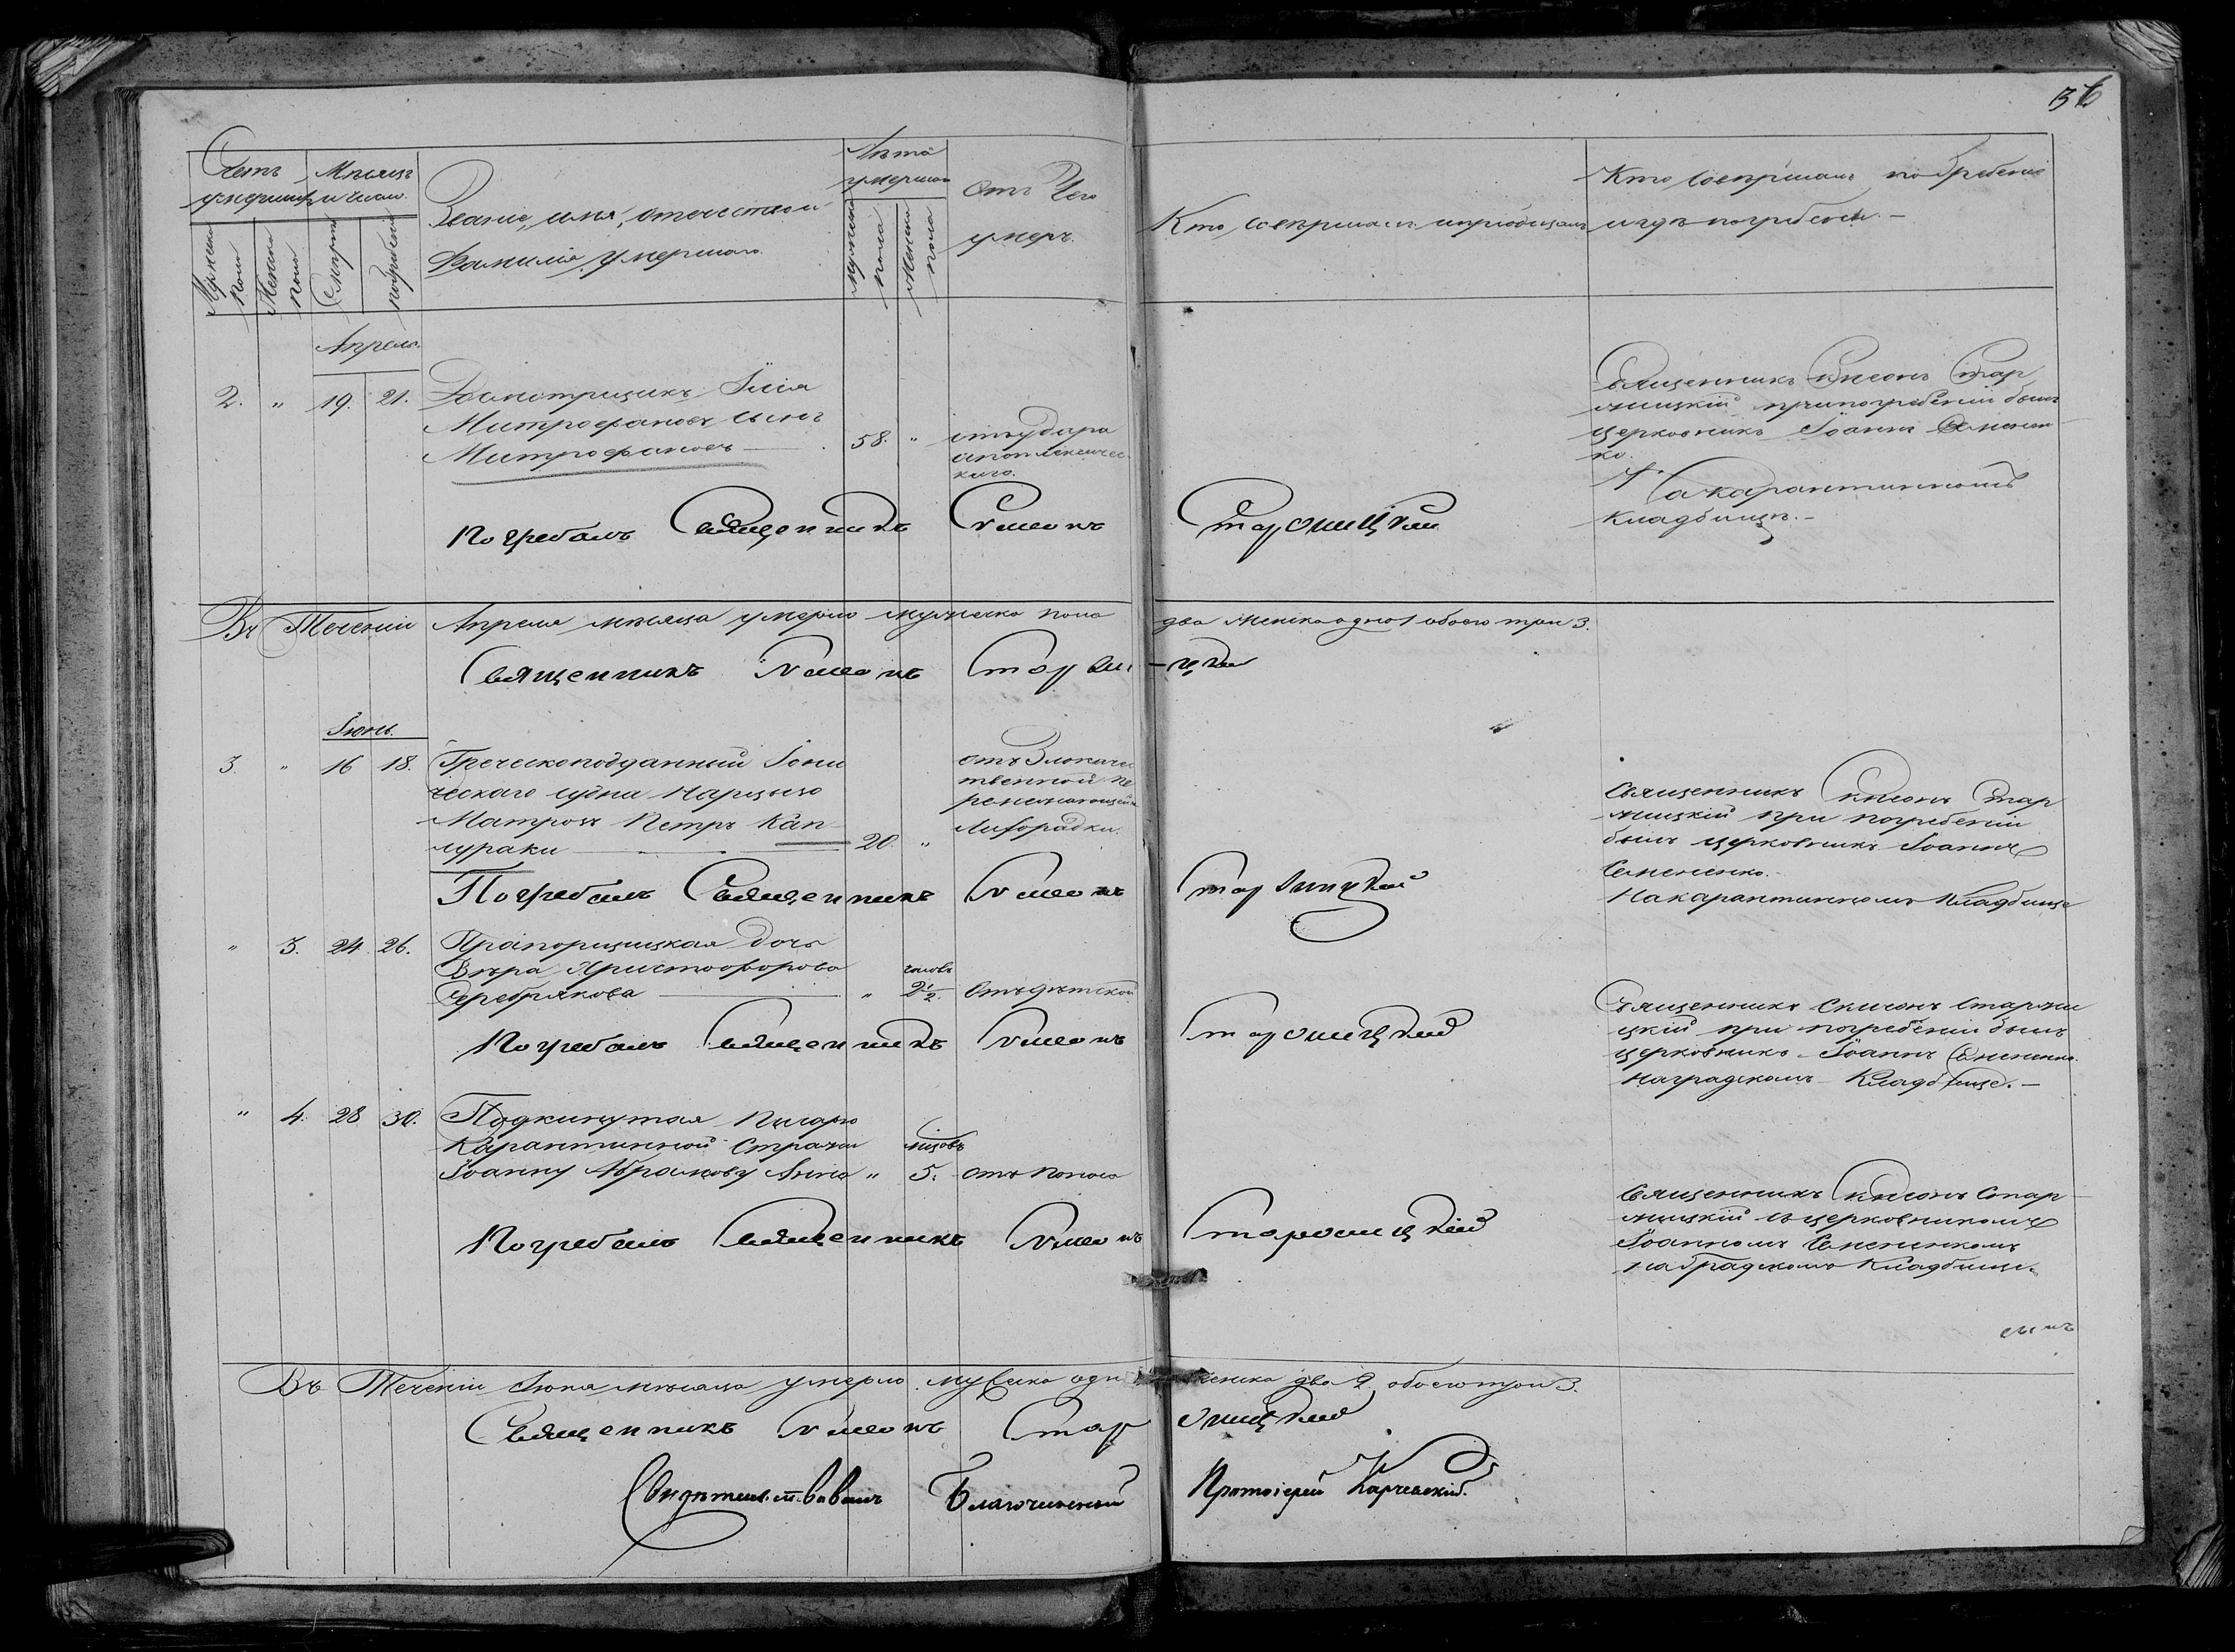 36
Счетъ умершихъ
Мѣсяцъ и число
Мужеска пола
Женска пола
Смерти
погребенія
Званіе, имя, отечество и
Фамилія умершаго.
Лѣта умершаго
Мужеска пола
Женска пола
Отъ Чего
умеръ.
Кто совершалъ погребеніе
и гдѣ погребены. —
Апрель.
2. " 19. 21. Досмотрщикъ Илія
Митрофановъ сынъ
Митрофановъ — 58. " отъ удара
апоплексичес
каго.
Священникъ Симеонъ Стар
жицкій при погребеніи былъ
церковникъ Іоаннъ Семенен
ко.
На карантинномъ
Кладбищѣ. —
Погребалъ Священникъ Симеонъ Старжицкій
Въ Теченіи Апреля мѣсяца умерло мужеска пола два женска одно 1 обоего три 3.
Священникъ Симеонъ Старжицкій
Іюнь.
3. " 16 18. Греческоподданный Іони
ческаго судна
Матросъ Петръ Кап
сураки — 20. "
отъ Злокачес
твенной пе
ремежающейся
Лихорадки.
Священникъ Симеонъ Стар
жицкій при погребеніи
былъ церковникъ Іоаннъ
Семененко.
На карантинномъ Кладбище
Погребалъ Священникъ Симеонъ Старжицкій
" 3. 24. 26. Прапорщицкая дочь
Вѣра Христофорова
Серебрякова — " часовъ 2 1/2. Отъ дѣтской
Священникъ Симеонъ Старжи
цкій при погребеніи былъ
церковникъ Іоаннъ Семененко.
На градскомъ Кладбище. —
Погребалъ Священникъ Симеонъ Старжицкій
" 4. 28 30. Подкинутая Писарю
Карантинной Стражи
Іоанну Абрамову Анна " мѣсяцовъ 5. отъ поноса
Священникъ Симеонъ Стар
жицкій съ церковникомъ
Іоанномъ Семененкомъ
на градскомъ Кладбище.
Погребалъ Священникъ Симеонъ Старжицкій
Въ Теченіи Іюня мѣсяца умерло мужеска одинъ женска два 2 обоего три 3.
Священникъ Симеонъ Старжицкій
Свидѣтельствовалъ Благочинный Протоіерей Карчевскій.